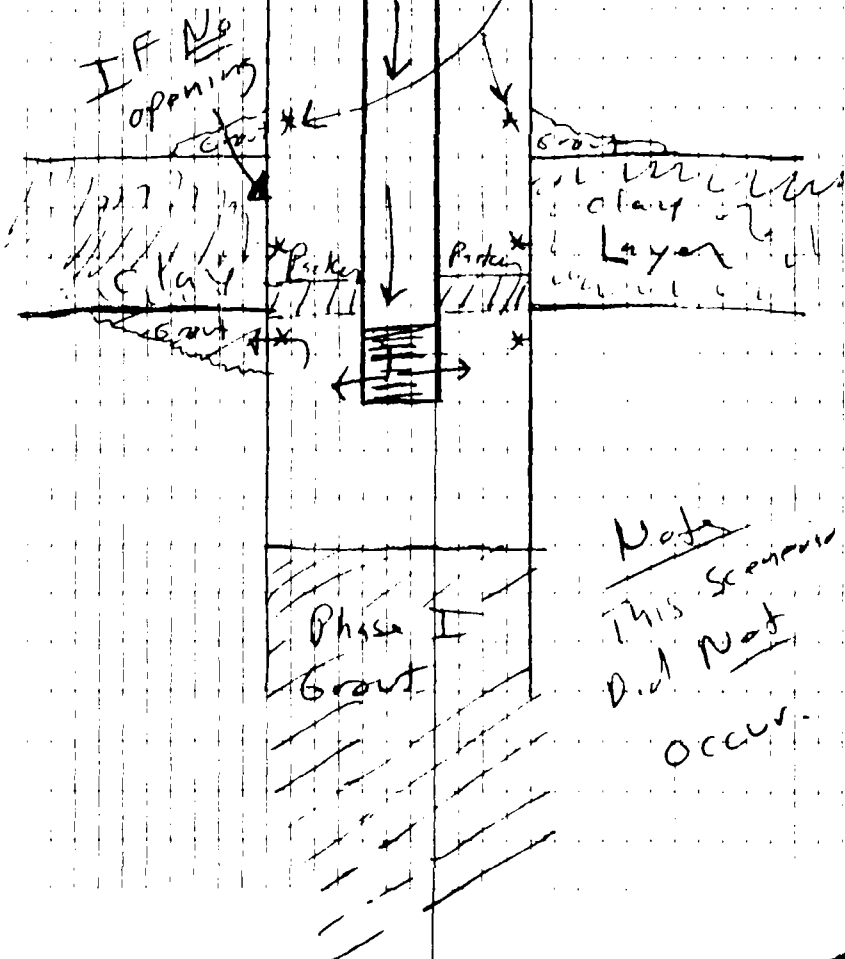 IF No
opening
Grout
Grout
Clay
Layer
Packer
Packer
Clay
Grout
Phase I
Grout
Note
This Scenario
Did Not
Occur.